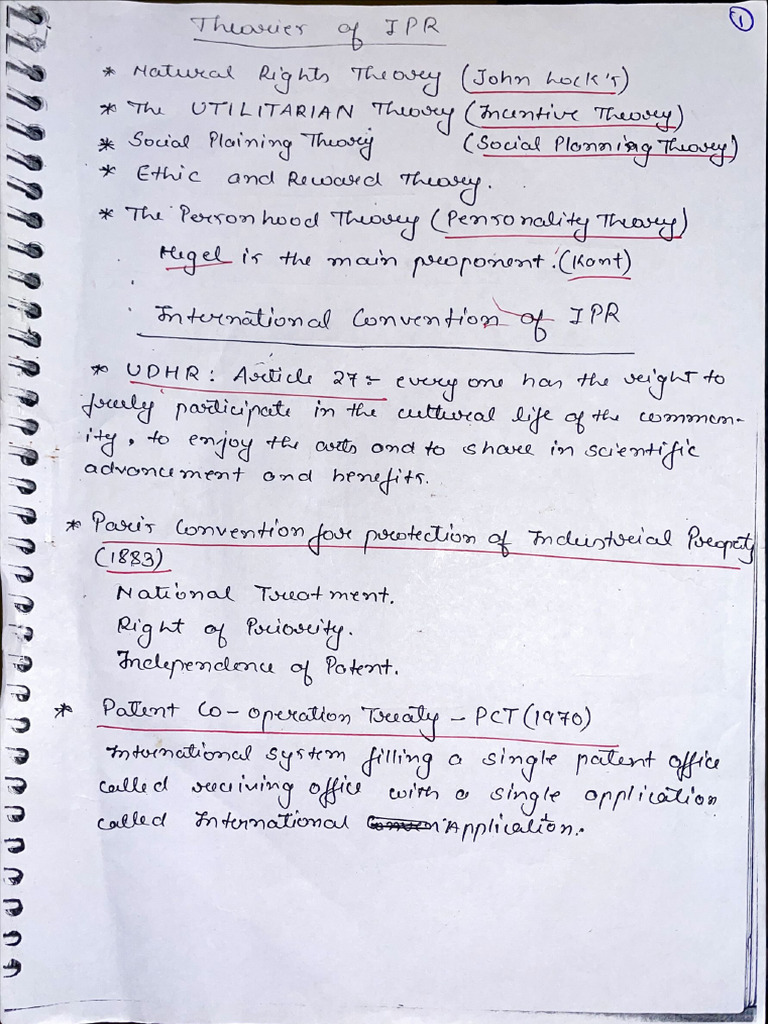 1
Theories of IPR
* Natural Rights Theory (John Lock's)
* The UTILITARIAN Theory (Incentive Theory)
* Social Plaining Theory (Social Planning Theory)
* Ethic and Reward Theory.
* The Personhood Theory (Personality Theory)
Hegel is the main proponent. (Kant)
International Convention of IPR
* UDHR: Article 27:- every one has the right to
freely participate in the cultural life of the commun-
ity, to enjoy the arts and to share in scientific
advancement and benefits.
* Paris Convention for protection of Industrial Property
(1883)
National Treatment.
Right of Priority.
Independence of Patent.
* Patent Co-operation Treaty - PCT (1970)
International System filling a single patent office
called receiving office with a single application
called International Application.